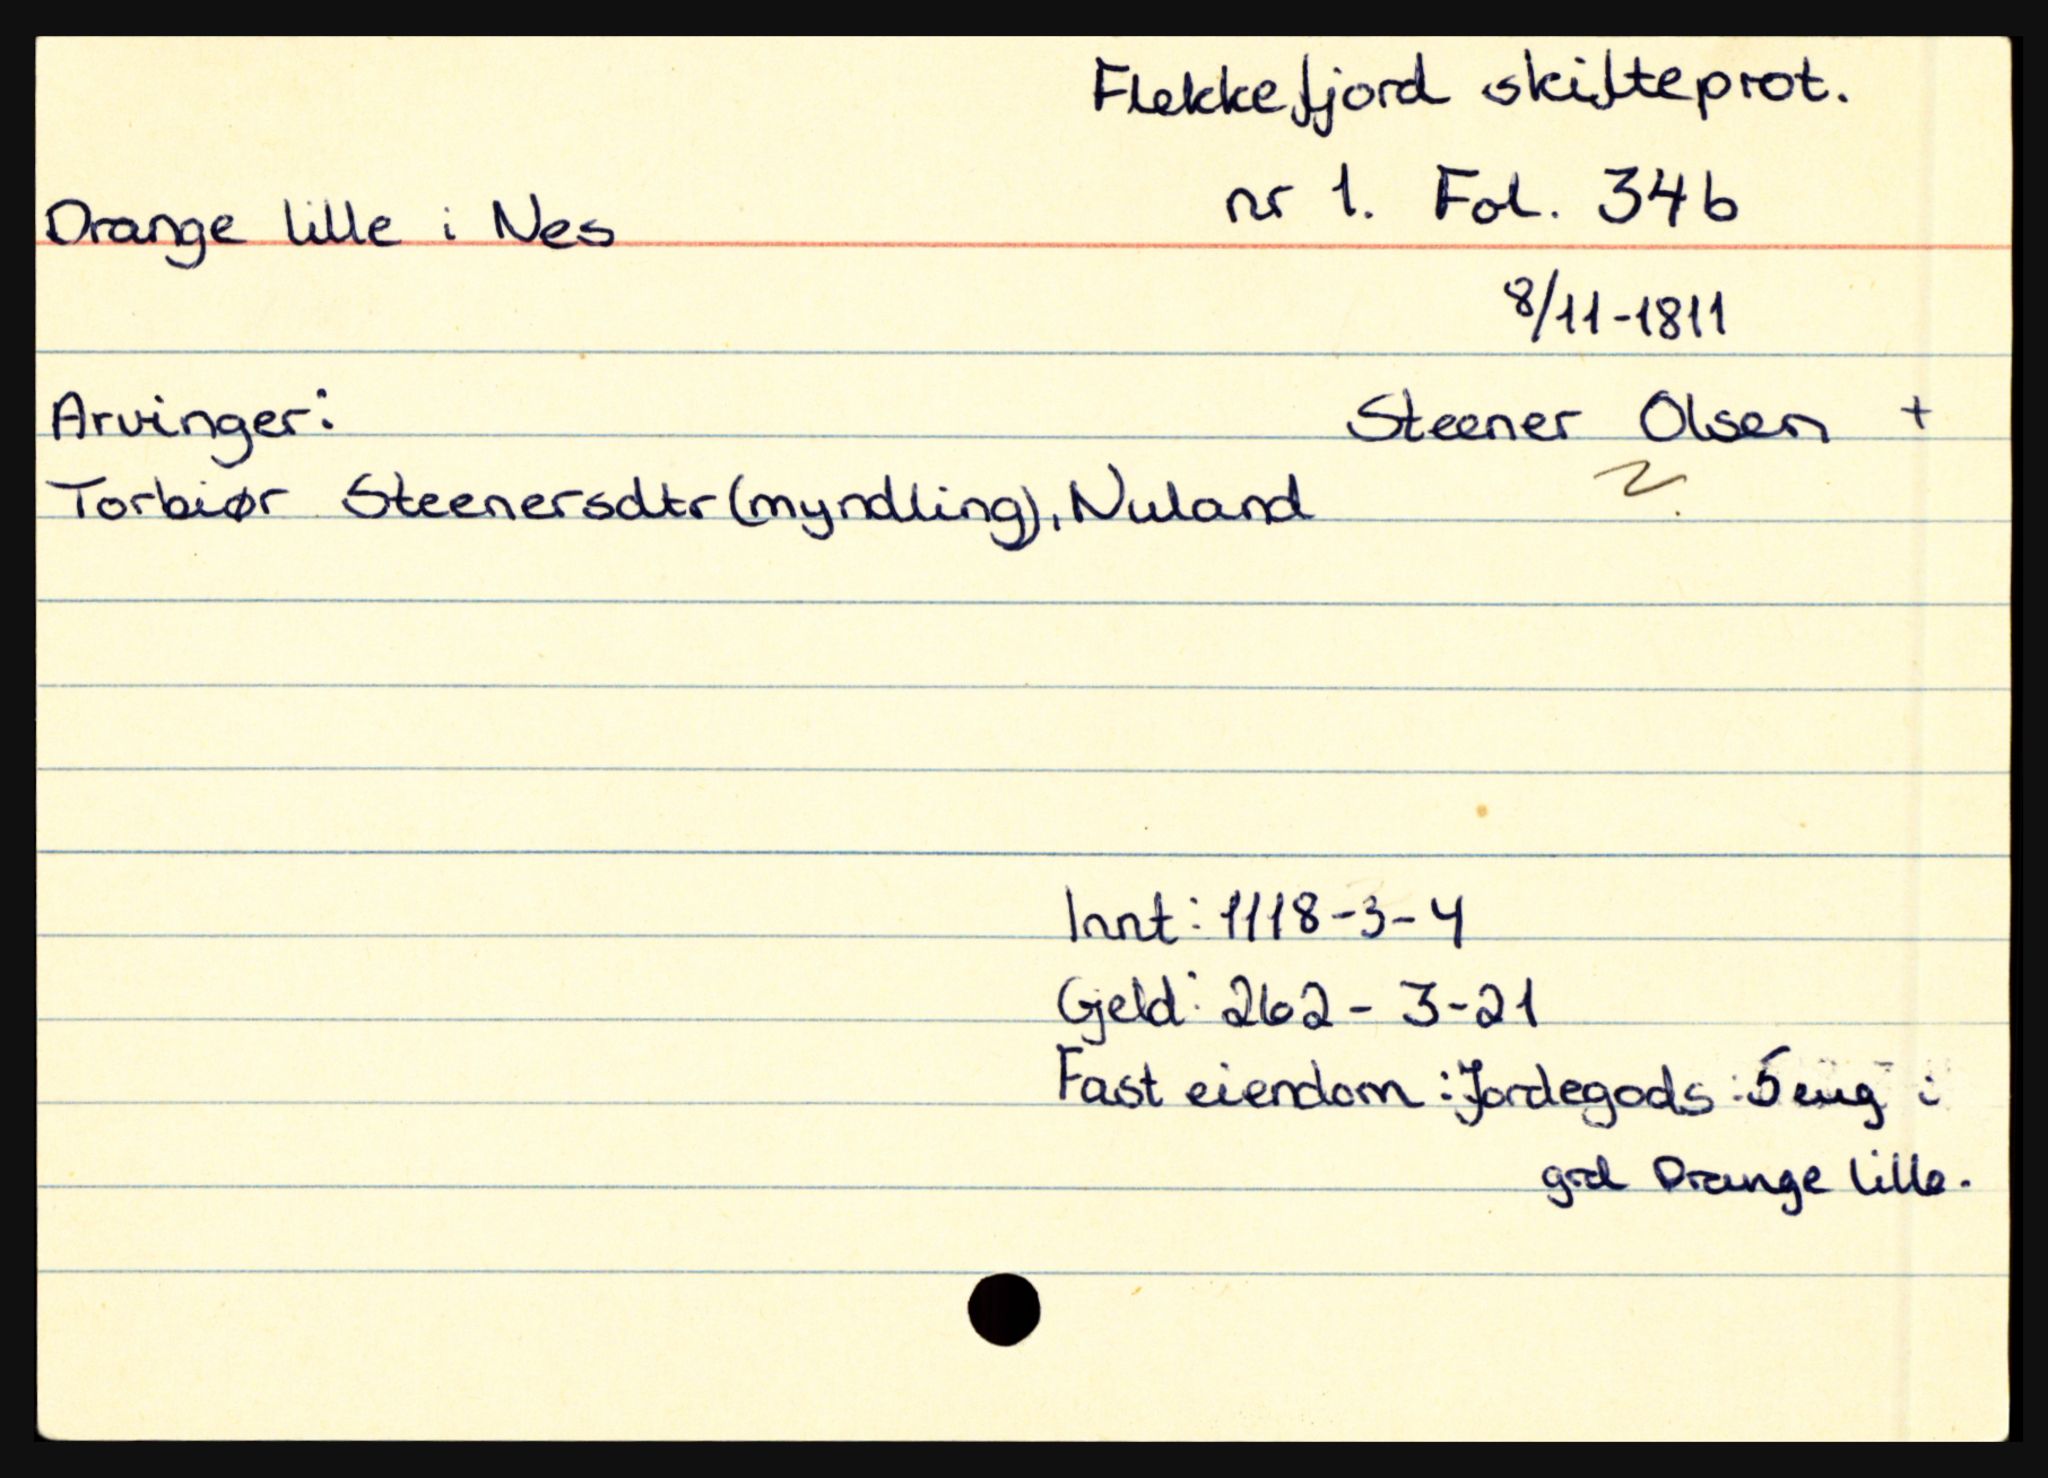 Flekkefjord skifteprot.
nr 1. Fol. 34b
Drange lille i Nes
8/11-1811
Arvinger:
Steener Olsen +
Torbiør Steenersdtr (myndling), Nuland
Innt: 1118-3-4
Gjeld: 262 - 3-21
Fast eiendom: Jordegods: 5 eng i
grd Drange lille.